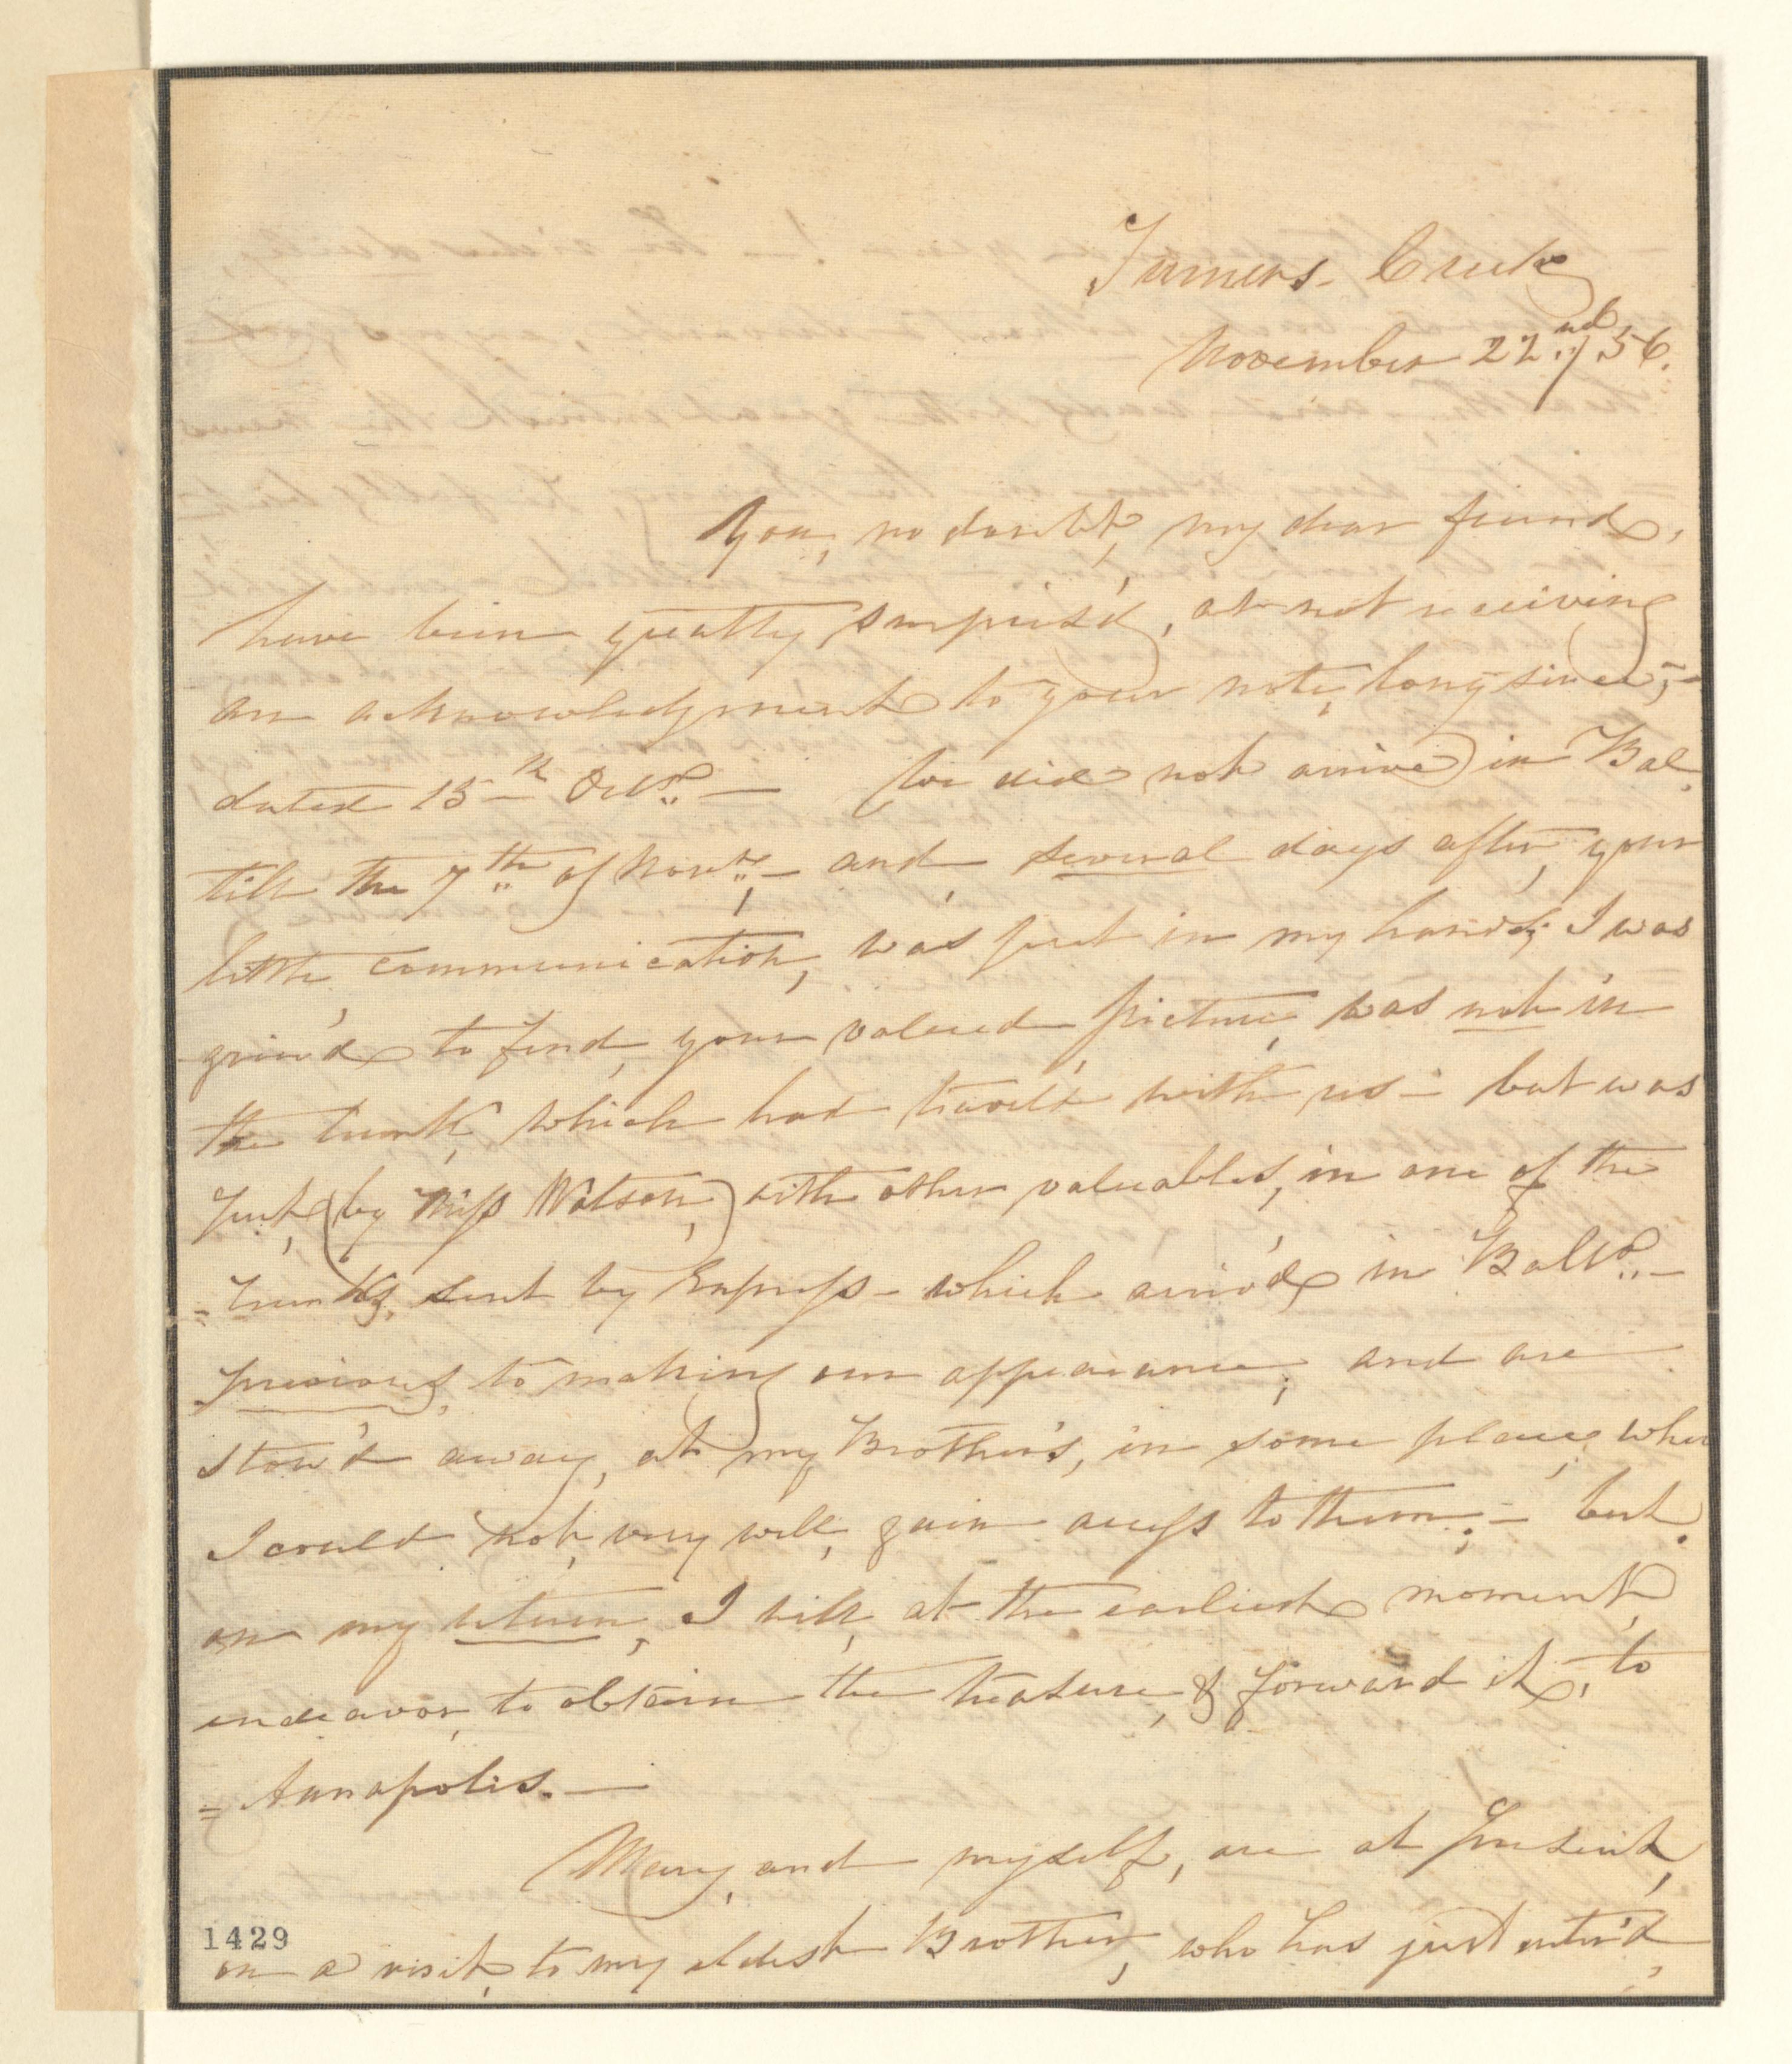 Turners. Creek
November 22.nd/56.
You, no doubt, my dear friend,
have been greatly surpris'd, at not receiving
an acknowledgment to your note, long since;-
dated 15th Octr.. — We did not arrive in Bal.
till the 7th of Novr..,- and, several days after, your
little, communication, was put in my hands; I was
griev'd to find, your valued picture, was not in
the trunk, which had travell'd with us- but was
put, (by Miss Watson,) with other valuables, in one of the
=trunks, sent by Express- which arriv'd in Balto..-
previous, to making our appearance; and are
stow'd away, at my Brother's, in some place, where
I could not, very well, gain access to them;- but.
on my return, I will, at the earliest moment,
endeavor, to obtain the treasure, & forward it, to
=Annapolis.—
Mary, and myself, are at present,
1429
on a visit, to my eldest Brother, who has just enter'd,